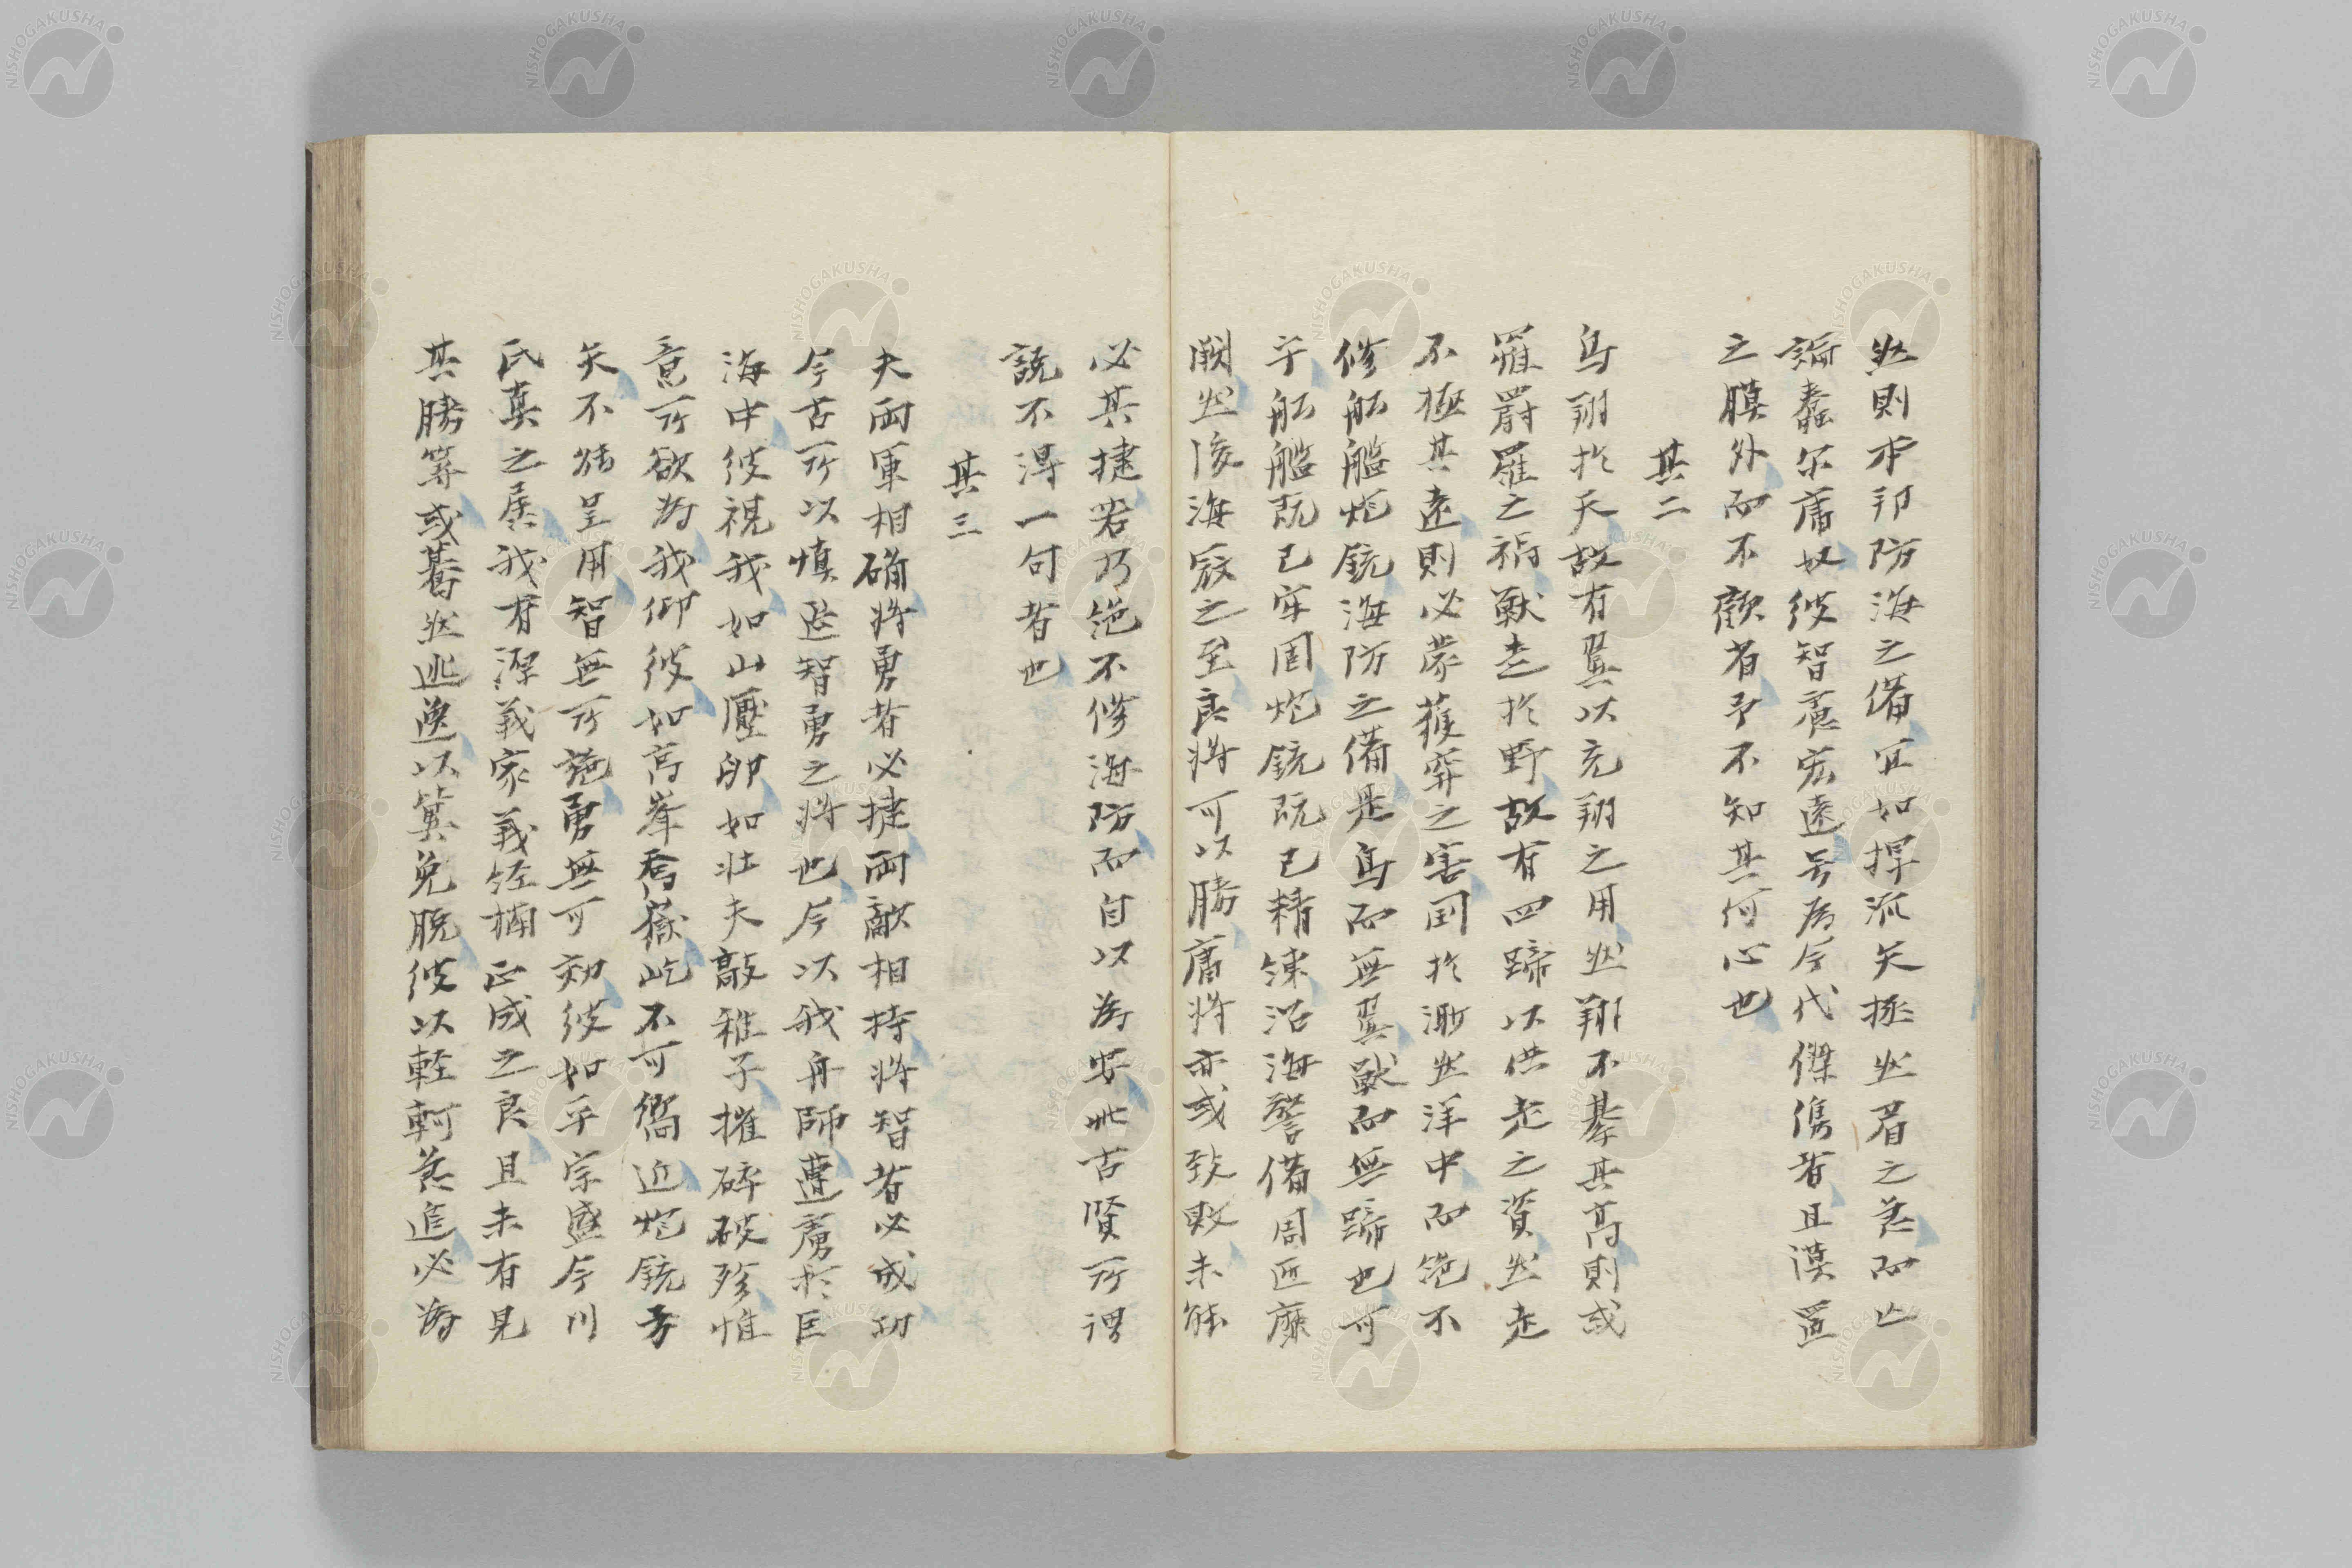 然則本邦防海之備宜如捍流矢拯然眉之急而亡
論蠢尔庸奴彼智慮宏遠号為今代傑儁者且漠置
之膜外而不顧者予不知其何心也
其二
鳥翔於天故有翼以充翔之用然翔不綦其高則或
罹罻羅之禍獣走於野故有四蹄以供走之資然走
不極其遠則必蒙獲穽之害国於渺然洋中而絶不
修舩艦炮銃海防之備是鳥而無翼獣而無蹄也可
乎舩艦既已牢固炮銃既已精錬沿海警備周匝靡
闕然後海寇之至良将可以勝庸将亦或致敗未能
必其捷若乃絶不修海防而自以為安此古賢所謂
説不得一句者也
其三
夫両軍相确将勇者必捷両敵相持将智者必成功
今古所以慎選智勇之将也今以我舟師遭虜於巨
海中彼視我如山壓卵如壮夫敲稚子摧碎破殄惟
意所欲為我仰彼如高峯喬嶽屹不可嚮近炮銃弓
矢不能呈用智無所施勇無可効彼如平宗盛今川
氏真之孱我有源義家義経楠正成之良且未有見
其勝算或驀然逃逸以冀免脱彼以軽軻急追必為